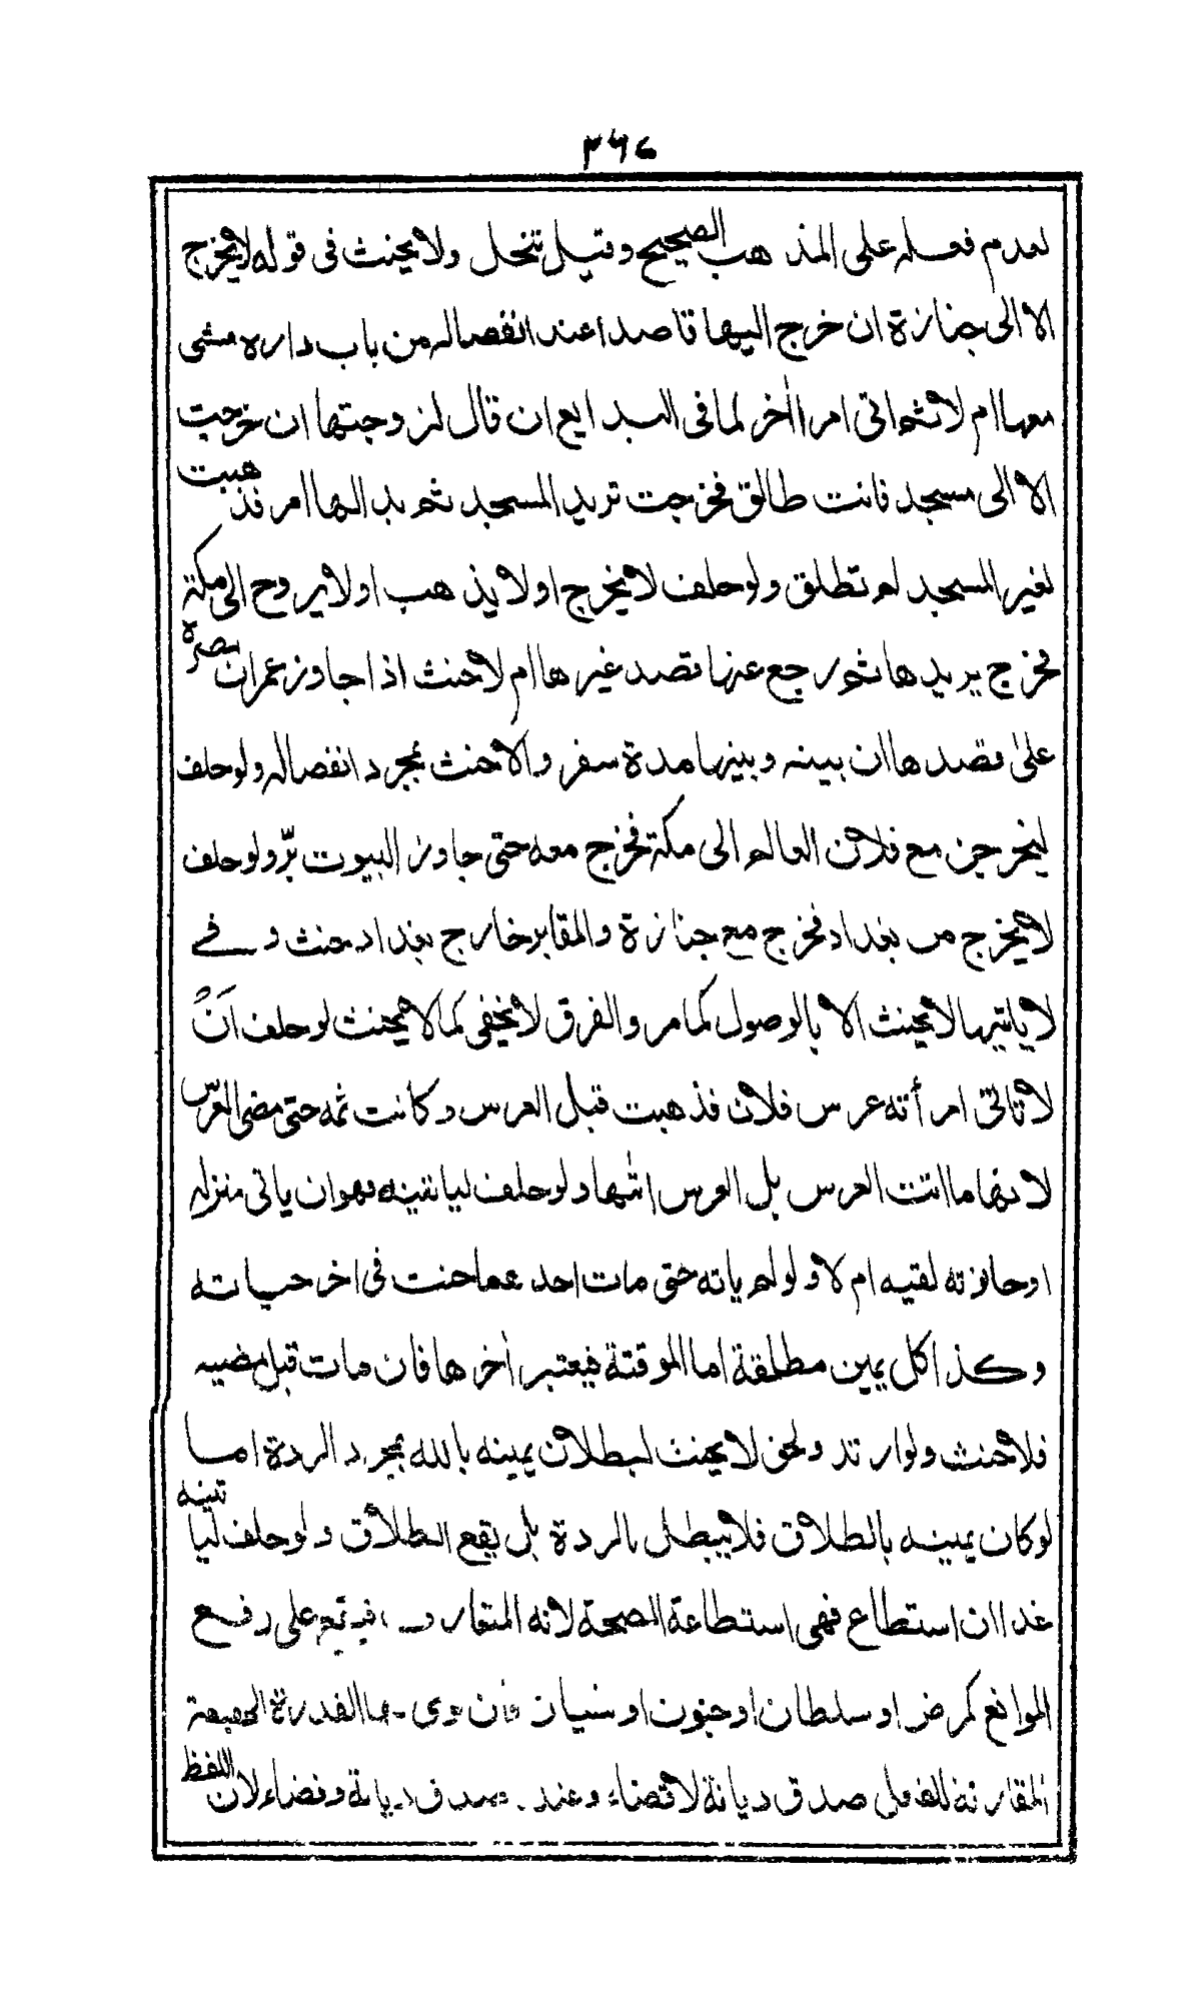 ٣٦٧
لعدم فعله على المذهب الصحيح وقيل تنحل ولا يحنث فى قوله لا يخرج
الا الى جنازة ان خرج اليها قاصدا عند انفصاله من باب داره مشى
معها ام لا ثم اتى امرا اٰخر لما فى البدايع ان قال لزوجتها ان خرجت
الا الى مسجد فانت طالق فخرجت تريد المسجد ثم بدا لها امر فذهبت
لغير المسجد لم تطلق ولو حلف لا يخرج او لا يذهب او لا يروح الى مكة
فخرج يريدها ثم رجع عنها قصد غيرها ام لا حنث اذا جاوز عمران مصره
علىٰ قصدها ان بينه وبينها مدة سفر والا حنث بمجرد انفصاله ولو حلف
ليخرجن مع فلان العالم الى مكة فخرج معه حتى جاوز البيوت برّ ولو حلف
لا يخرج من بغداد فخرج مع جنازة والمقابر خارج بغداد حنث وفے
لا ياتيها لا يحنث الا بالوصول كما مر والفرق لا يخفى كما لا يحنث لو حلف اَنْ
لا تاتى امرأته عرس فلان فذهبت قبل العرس وكانت ثمه حتى مضى العرس
لانها ما اتت العرس بل العرس اتٰها ولو حلف لياتينه فهو ان ياتى منزله
او حانوته لقيه ام لا ولو لم ياته حتى مات احدهما حنث فى اخر حياته
وكذا كل يمين مطلقة اما الموقتة فيعتبر اٰخرها فان مات قبل مضيه
فلا حنث ولو ارتد ولحق لا يحنث لبطلان يمينه بالله بمجرد الردة اما
لو كان يمينه بالطلاق فلا يبطل بالردة بل يقع الطلاق ولو حلف لياتينه
غدا ان استطاع فهى استطاعة الصحة لانه المتعارف فيقع على رفع
الموانع كمرض او سلطان او جنون او نسيان وان نوى بها القدرة الحقيقة
المقارنة للفعل صدق ديانة لا قضاء وعند صدق ديانة وقضاء لان اللفظ